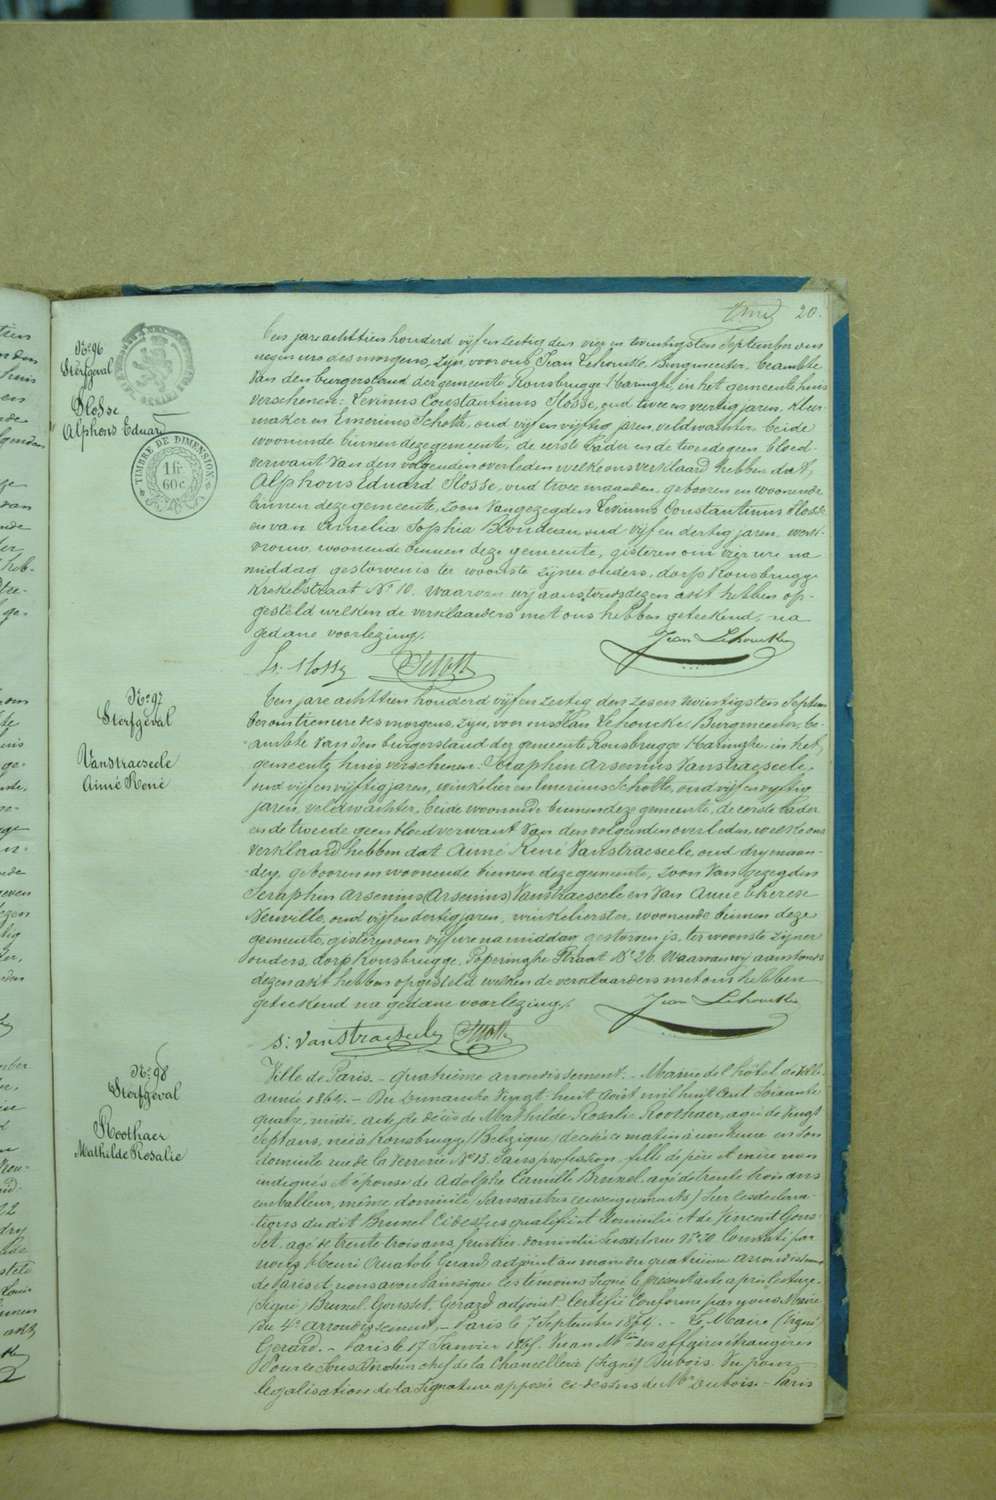 20.
N° 96
Sterfgeval
Slosse
Alphons Eduard
TIMBRE DE DIMENSION
1 fr.
60 c.
Ten jare achttien honderd vijf en zestig den vier en twintigsten September om
negen ure des morgens, zijn, voor ons Jean Lehoucke, Burgmeester, beambte
van den burgerstand der gemeente Rousbrugge Haringhe, in het gemeente huis
verschenen: Levinus Constantinus Slosse, oud twee en veertig jaren, kleer-
maker en Emerinus Schotte, oud vijf en vijftig jaren, veldwachter, beide
woonende binnen deze gemeente, de eerste vader en de tweede geen bloed-
verwant van den volgenden overleden welke ons verklaard hebben dat,
Alphons Eduard Slosse, oud twee maanden, geboren en woonende
binnen deze gemeente, zoon van gezegden Levinus Constantinus Slosse
en van Amelia Sophia Blondeau, oud vijf en dertig jaren, werk-
vrouw, woonende binnen deze gemeente, gisteren om vier ure na
middag gestorven is ter woonste zijner ouders, dorp Rousbrugge
Krekelstraat N° 10. Waarvan wij aanstonds dezen akt hebben op-
gesteld welken de verklaarders met ons hebben geteekend, na
gedane voorlezing.
Jean Lehoucke
Ls. Slosse Schotte
N° 97
Sterfgeval
Vanstraeseele
Aimé René
Ten jare achttien honderd vijf en zestig den zes en twintigsten Septem
ber om tien ure des morgens, zijn, voor ons Jean Lehoucke, Burgmeester, be-
ambte van den burgerstand der gemeente Rousbrugge Haringhe, in het
gemeente huis verschenen: Seraphin Arsenius Vanstraeseele,
oud vijf en vijftig jaren, winkelier en Emerinus Schotte, oud vijf en vijftig
jaren, veldwachter, beide woonende binnen deze gemeente, de eerste vader
en de tweede geen bloedverwant van den volgenden overleden, welke ons
verklaard hebben dat Aimé René Vanstraeseele, oud dry maan-
den, geboren en woonende binnen deze gemeente, zoon van gezegden
Seraphin Arsenius (Arsenius) Vanstraeseele en van Anne Therese
Neuville, oud vijf en dertig jaren, winkelierster, woonende binnen deze
gemeente, gisteren om vijf ure na middag gestorven is, ter woonste zijner
ouders, dorp Rousbrugge, Poperinghe Straat N° 26. Waarvan wij aanstonds
dezen akt hebben opgesteld welken de verklaarders met ons hebben
geteekend na gedane voorlezing.
Jean Lehoucke
S: Vanstraeseele Schotte
N° 98
Sterfgeval
Roothaer
Mathilde Rosalie
Ville de Paris. - quatrième arrondissement. - Mairie de l'hôtel de Ville
année 1864. - Du Dimanche Vingt huit Août mil huit cent Soixante
quatre, midi, acte de décès de Mathilde Rosalie Roothaer, agée de vingt
sept ans, née à Rousbrugg (Belgique) décédée ce matin à une heure en son
domicile rue de la Verrerie N° 13. Sans profession, fille de père et mère non
indiqués et épouse de Adolphe Camille Brunel, agé de trente trois ans
emballeur, même domicile (Sans autres renseignements) Sur les déclara-
tions du dit Brunel ci dessus qualifié et domicilié et de Vincent Gons-
set, agé de trente trois ans, peintre, domicilié N° 20 Constaté par
nous Henri Anatole Gérard adjoint au maire du quatrième arrondissement
de Paris et nous avons Sans que les témoins Signé le présent acte après lecture.
(Signé) Brunel. Gonsset. Gérard adjoint. Certifié Conforme par nous Maire
du 4e arrondissement, - Paris le 7 Septembre 1864. - Le Maire (Signé
Gérard. - Paris le 17 Janvier 1865. Vu au Min des affaires étrangères
Pour le Sous Directeur chef de la Chancellerie (Signé) Dubois. Vu pour
légalisation de la Signature apposée ci-dessus de Mr Dubois - Paris